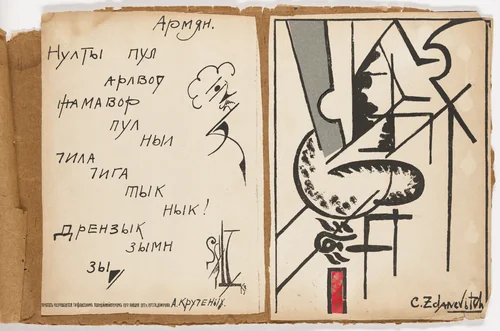 Армян.
Нулты пул
арвод
жамавор
пул
ныл
тила
тига
тык
нык!
Дрензык
зымн
зы
А. Крученых
C. Zdanevitch